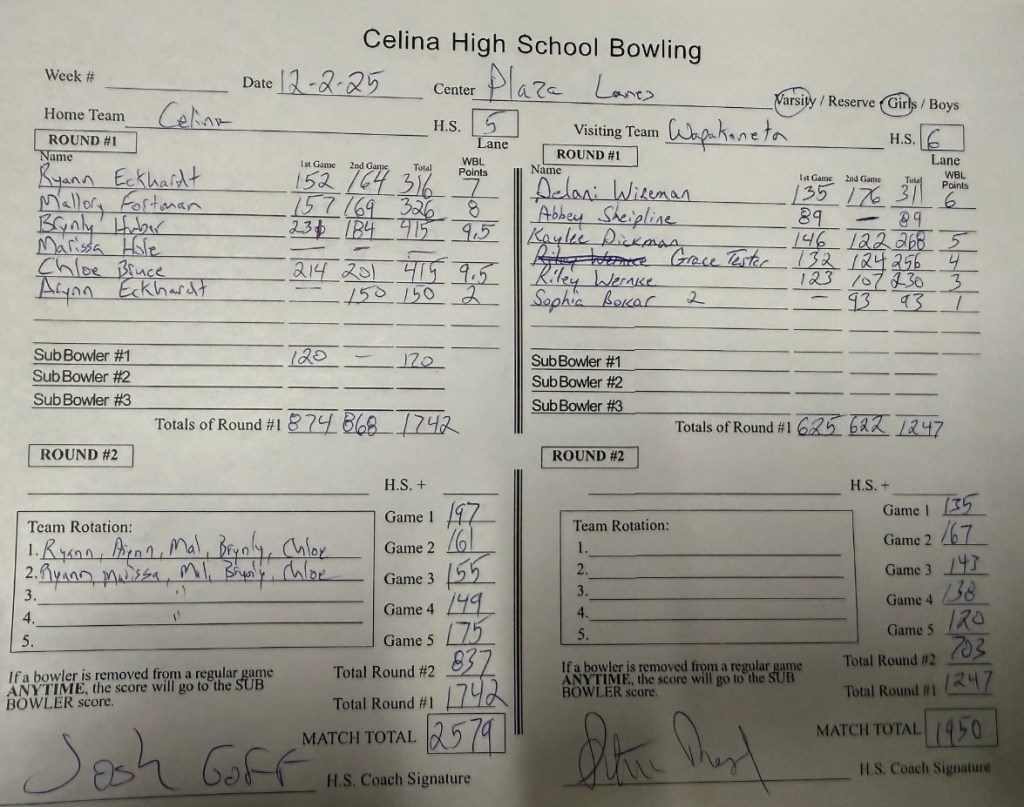 Celina High School Bowling
Week # Date 12-2-25 Center Plaza Lanes Varsity / Reserve Girls / Boys
Home Team Celina H.S. 5 Lane
ROUND #1
Name 1st Game 2nd Game Total WBL Points
Ryann Eckhardt 152 164 316 7
Mallory Fortman 157 169 326 8
Brynly Huber 231 184 415 9.5
Marissa Hole — — —
Chloe Bruce 214 201 415 9.5
Arynn Eckhardt — 150 150 2
Sub Bowler #1 120 — 120
Sub Bowler #2
Sub Bowler #3
Totals of Round #1 874 868 1742
Visiting Team Wapakoneta H.S. 6 Lane
ROUND #1
Name 1st Game 2nd Game Total WBL Points
Delani Wizeman 135 176 311 6
Abbey Sheipline 89 — 89
Kaylee Dickman 146 122 268 5
Riley Wernke Grace Tester 132 124 256 4
Riley Wernke 123 107 230 3
Sophia 2 — 93 93 1
Sub Bowler #1
Sub Bowler #2
Sub Bowler #3
Totals of Round #1 625 622 1247
ROUND #2
H.S. +
Team Rotation:
1. Ryann, Arynn, Mal, Brynly, Chloe
2. Ryann, Marissa, Mal, Brynly, Chloe
3. "
4. "
5.
Game 1 197
Game 2 161
Game 3 155
Game 4 149
Game 5 175
Total Round #2 837
Total Round #1 1742
If a bowler is removed from a regular game
ANYTIME, the score will go to the SUB
BOWLER score.
MATCH TOTAL 2579
Josh Goff H.S. Coach Signature
ROUND #2
H.S. +
Team Rotation:
1.
2.
3.
4.
5.
Game 1 135
Game 2 167
Game 3 143
Game 4 138
Game 5 120
Total Round #2 703
Total Round #1 1247
If a bowler is removed from a regular game
ANYTIME, the score will go to the SUB
BOWLER score.
MATCH TOTAL 1950
H.S. Coach Signature